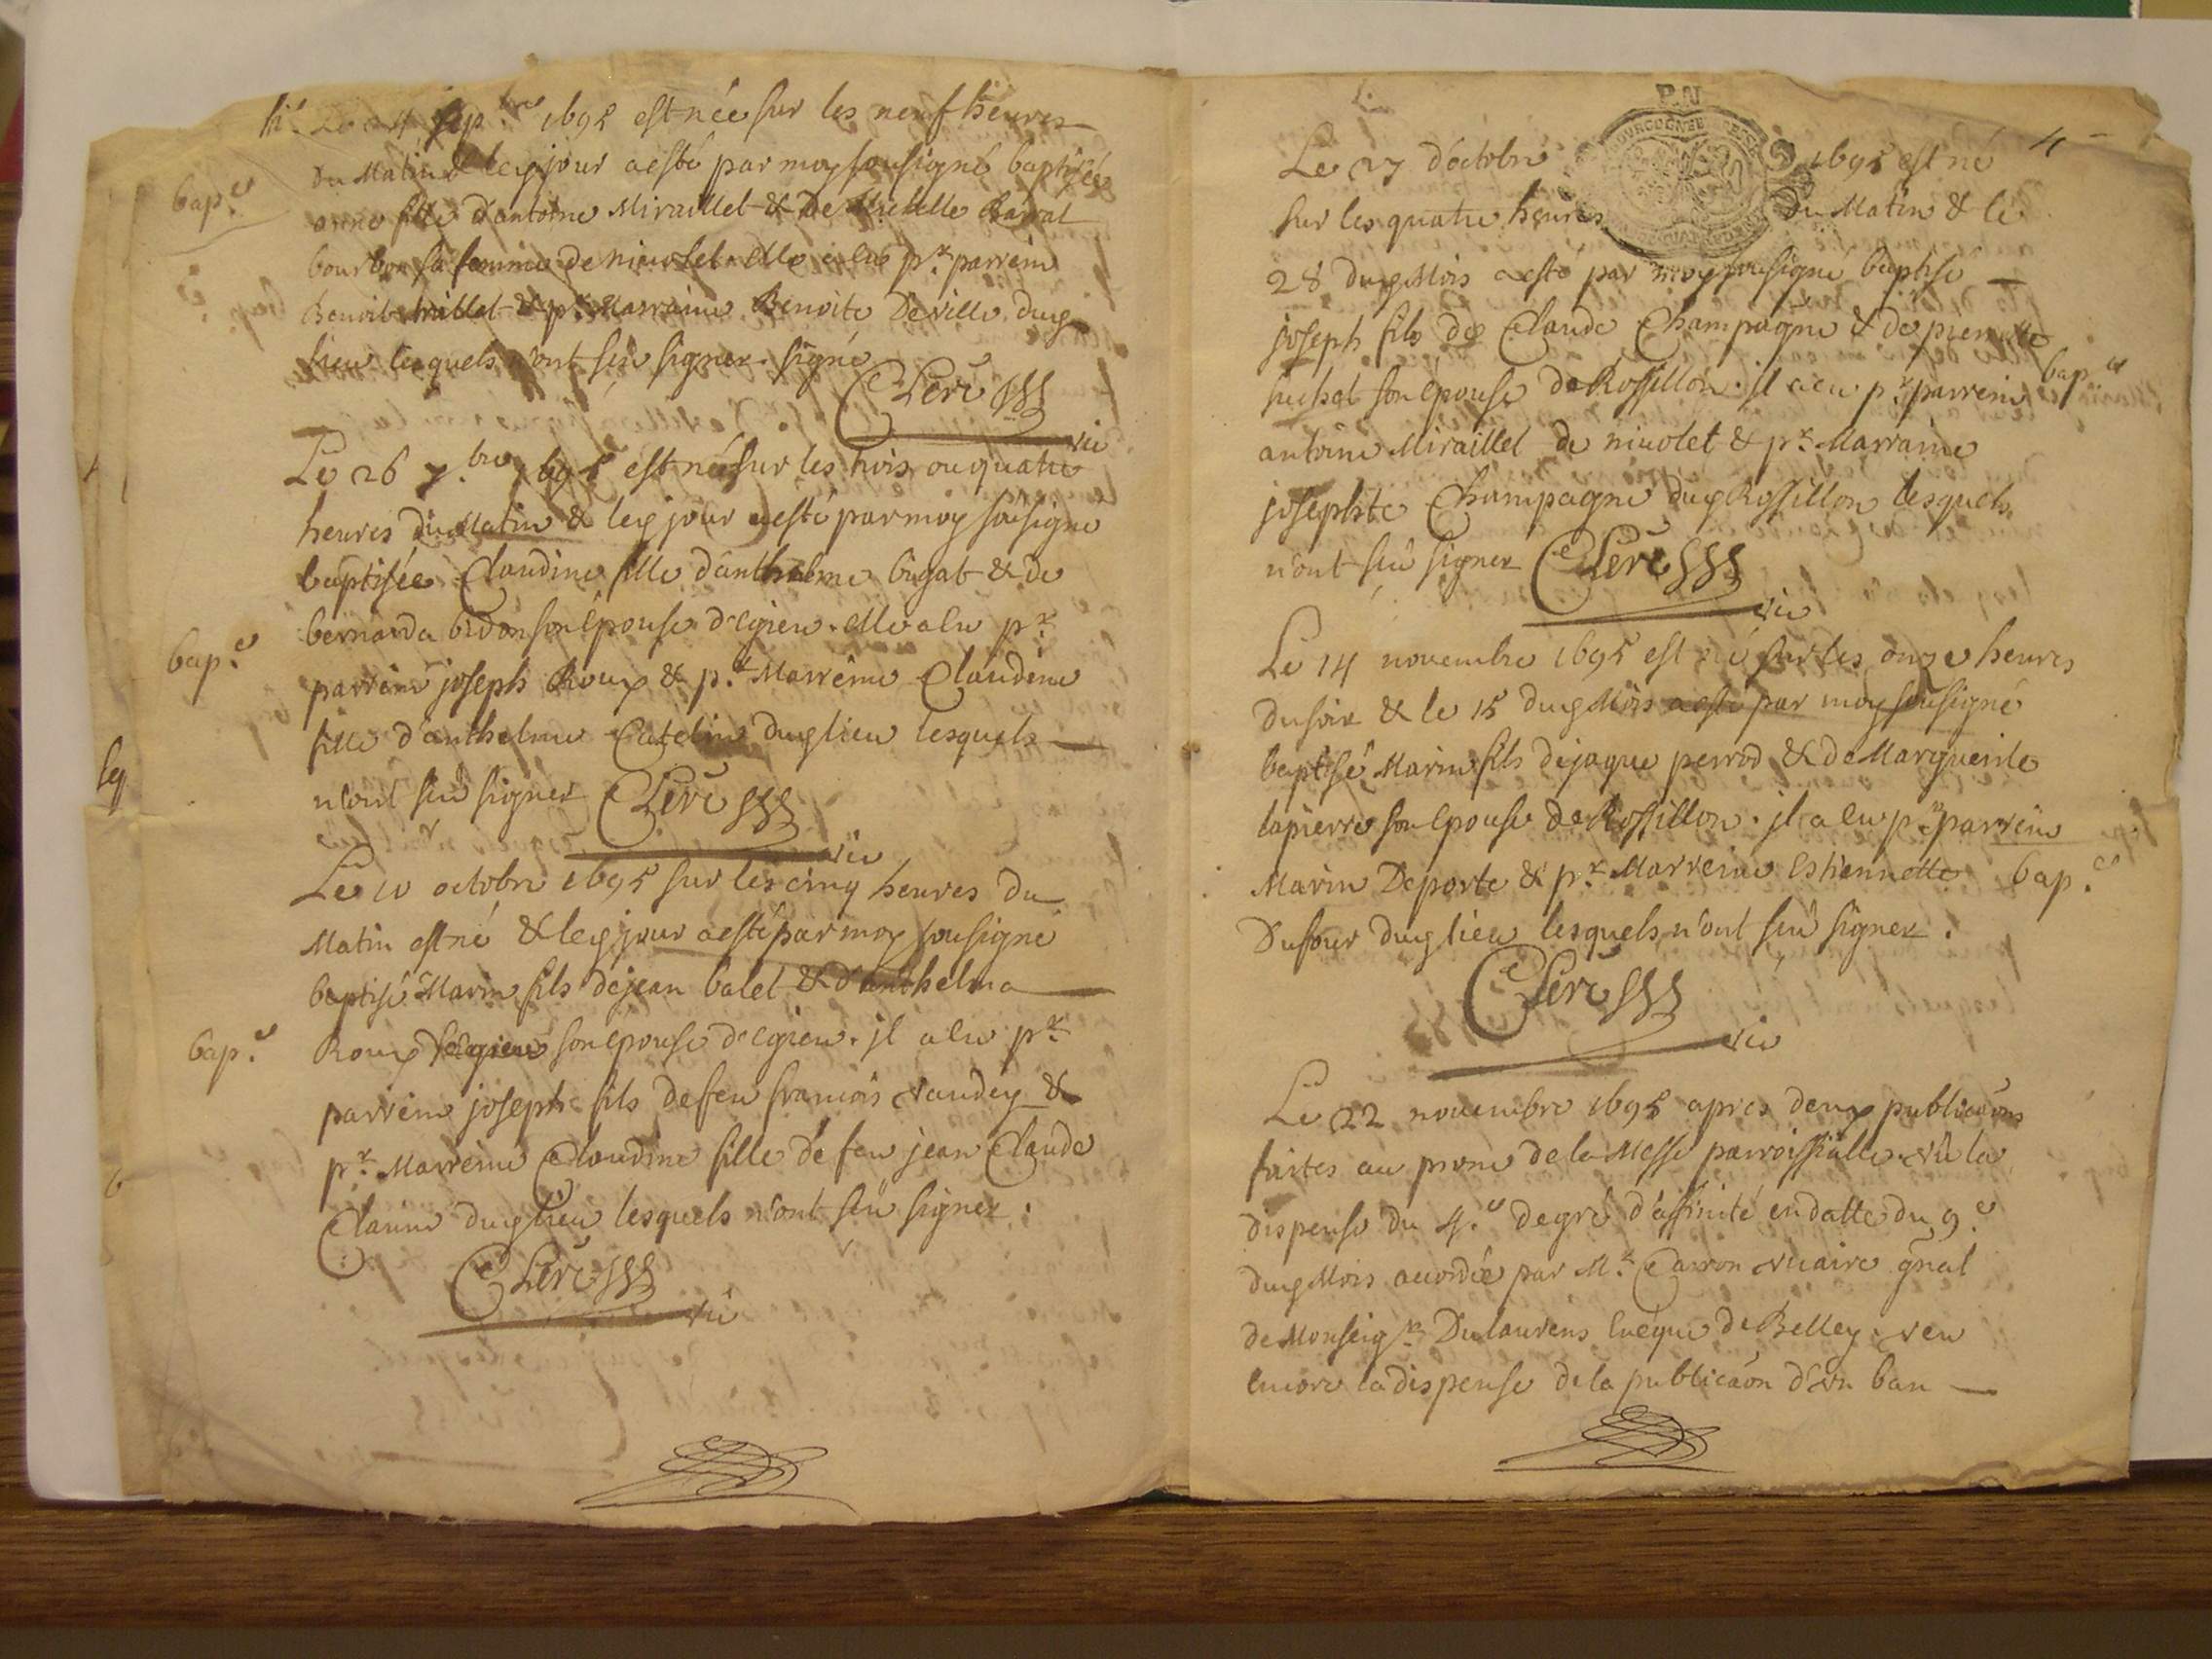 sep.bre 1695 est née sur les neuf heures
du Matin & led jour a esté par moy sousigné baptisée
bap.e
anne fille d'antoine Miraillet & de Michelle Barrat
bourbon sa femme de nicolet. elle a eu pr. parrein
Benoit & pr. Marraine Benoite Deville dud
lieu lesquels n'ont sçu signer. signé
Clerc
vic
Le 26 7.bre 1695 est née sur les trois ou quatre
heures du Matin & led jour a esté par moy sousigné
baptisée Claudine fille d'anthelme bigat & de
bernarda bidon son épouse d'egieu. elle a eu pr.
bap.e
parrein joseph Roux & pr. Marreine Claudine
fille d'anthelme Catelin dud lieu lesquels
n'ont sçu signer Clerc
vic
Le 10 octobre 1695 sur les cinq heures du
Matin est né & led jour a esté par moy sousigné
baptisé Marin fils de jean balet & d'anthelma
bap.e
Roux son épouse d'egieu. il a eu pr.
parrein joseph fils de feu francois vaudey &
pr. Marreine Claudine fille de feu jean Claude
dud lieu lesquels n'ont sçu signer.
Clerc
vic
P.N
4
Le 27 d'octobre 1695 est né
sur les quatre heures du Matin & le
28 dud Mois a esté par moy sousigné baptisé
joseph fils de Claude Champagne & de pernette
suchet son épouse de Rossillon. il a eu pr. parrein
bap.e
antoine Miraillet de nicolet & pr. Marraine
josephte Champagne dud Rossillon lesquels
n'ont sçu signer Clerc
vic
Le 14 novembre 1695 est né sur les onze heures
du soir & le 15 dud Mois a esté par moy sousigné
baptisé Marin fils de jaque perrod & de Marguerite
lapierre son épouse de Rossillon. il a eu pr. parrein
Marin Deporte & pr. Marreine Estiennette
bap.e
Dufour dud lieu lesquels n'ont sçu signer.
Clerc
vic
Le 22 novembre 1695 apres deux publicaõns
faites au prone de la Messe parroissialle. vû la
dispense du 4.e degré d'affinité en datte du 9.e
dud Mois accordée par Mr. Carron vicaire gñal
de Monseigr. Dulaurens Eveque de Belley. veu
encore la dispense de la publicaõn d'un ban